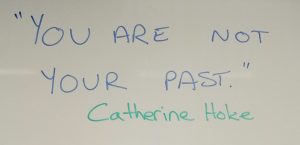 "YOU ARE NOT
YOUR PAST."
Catherine Hoke